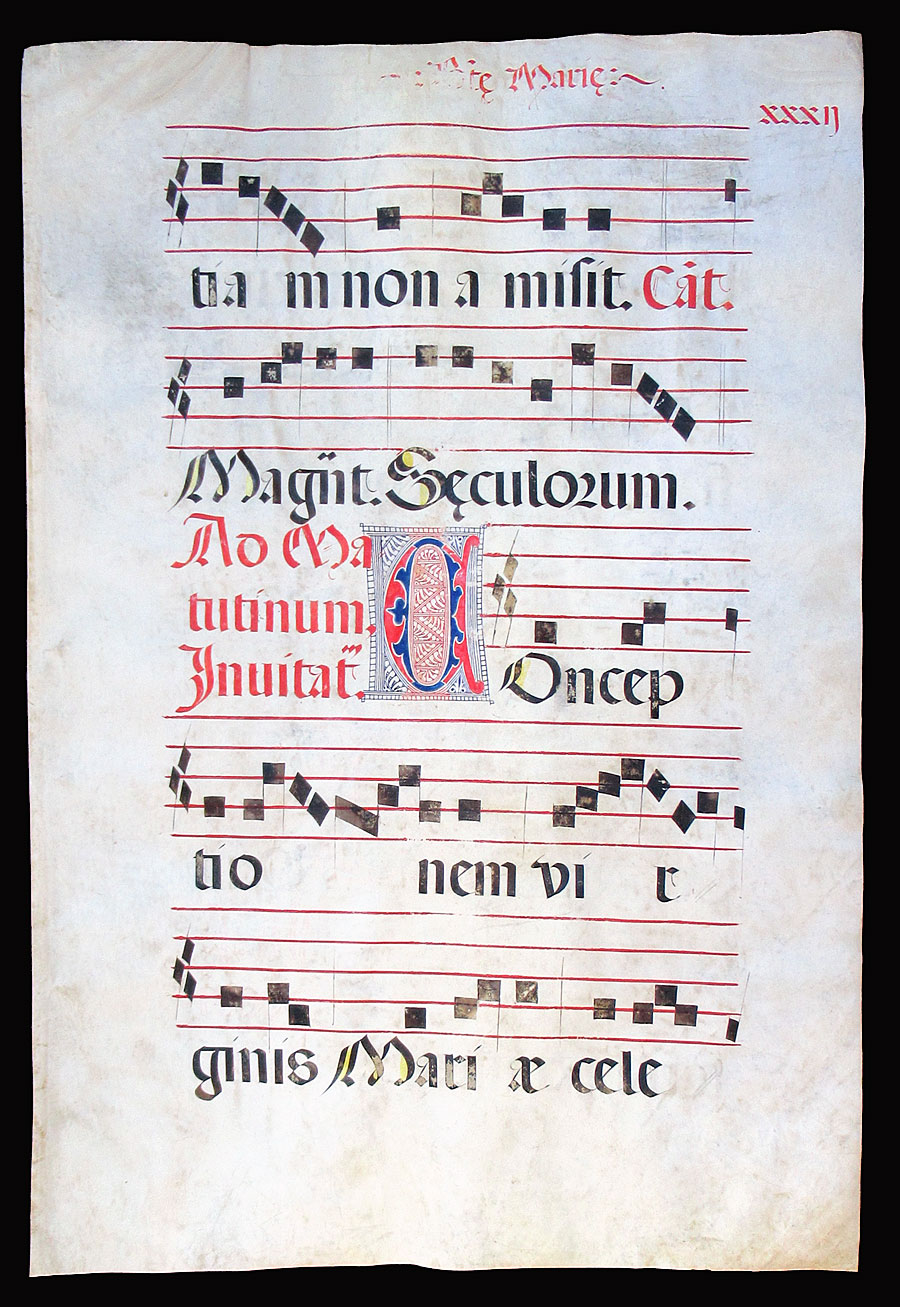 Marię
xxxij
tia m non a misit. Cāt.
Magn̄t. Sęculorum.
Ad Ma
tutinum.
Inuitat. COncep
tio nem vi r
ginis Mari æ cele